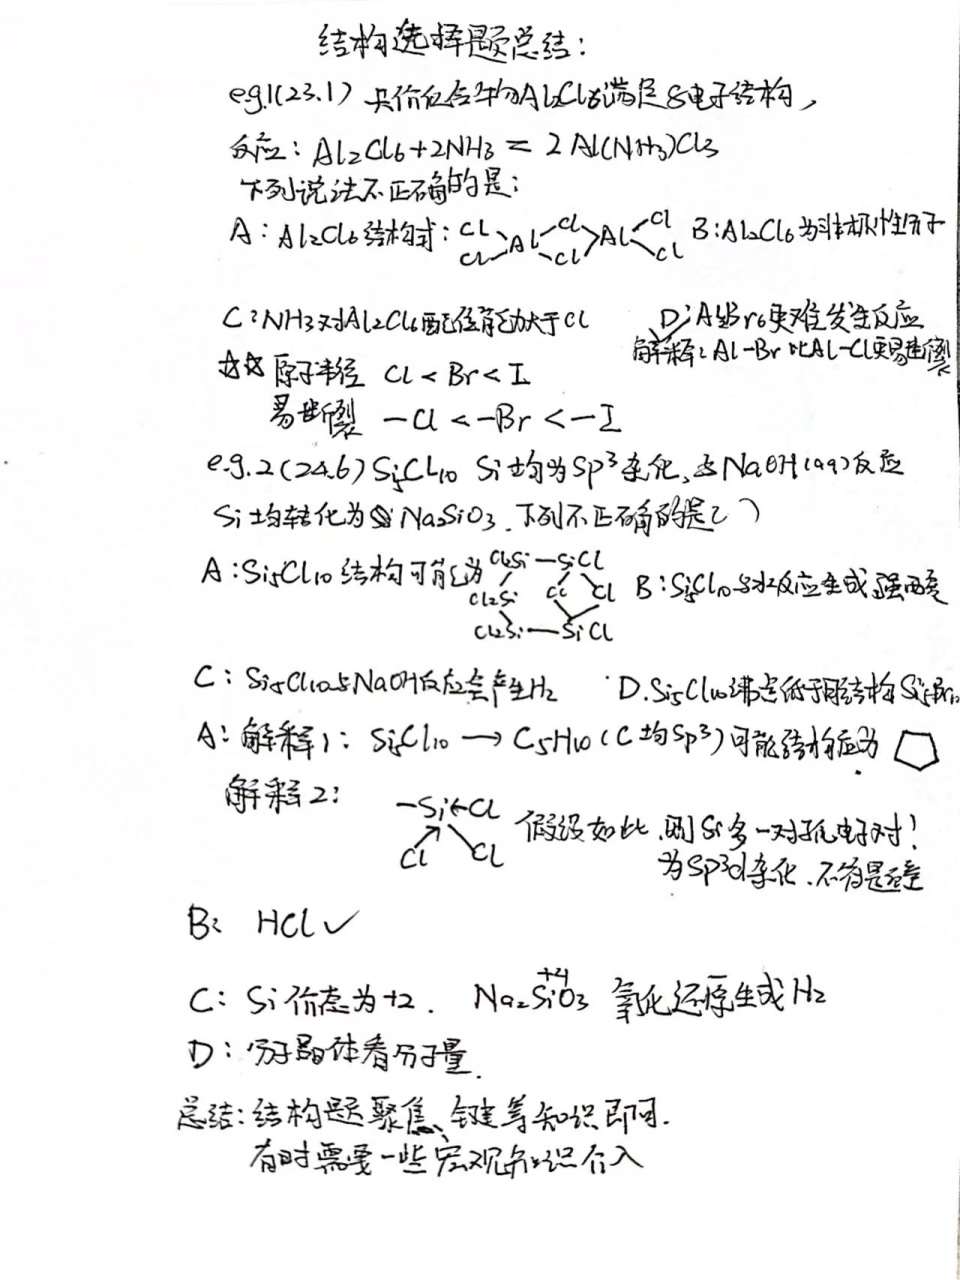 结构选择题总结:
e.g.1(23.1) 共价化合物Al2Cl6满足8电子结构,
反应: Al2Cl6+2NH3 = 2Al(NH3)Cl3
下列说法不正确的是:
A: Al2Cl6结构式: Cl Cl Al Cl Cl Al Cl Cl B: Al2Cl6为非极性分子
C: NH3对Al2Cl6配位能力大于Cl D: Al2Br6更难发生反应
解释: Al-Br比Al-Cl更易断裂
☆☆ 原子半径 Cl < Br < I
易断裂 -Cl < -Br < -I
e.g.2(24.6) Si5Cl10 Si均为Sp³杂化,与NaOH(aq)反应
Si均转化为Na2SiO3.下列不正确的是( )
A: Si5Cl10结构可能为 Cl2Si — SiCl Cl2Si Cl Cl Cl2Si — SiCl B: Si5Cl10与水反应生成强酸
C: Si5Cl10与NaOH反应会产生H2 D. Si5Cl10沸点低于同结构Si5Br10
A: 解释1: Si5Cl10 → C5H10 (C均Sp³)可能结构应为
解释2: -Si←Cl Cl Cl 假设如此,则Si多一对孤电子对!
为Sp³d杂化,不符题意
B: HCl ✓
C: Si价态为+2. Na2SiO3 +4 氧化还原生成H2
D: 分子晶体看分子量.
总结: 结构题聚焦、键等知识即可.
有时需要一些宏观知识介入